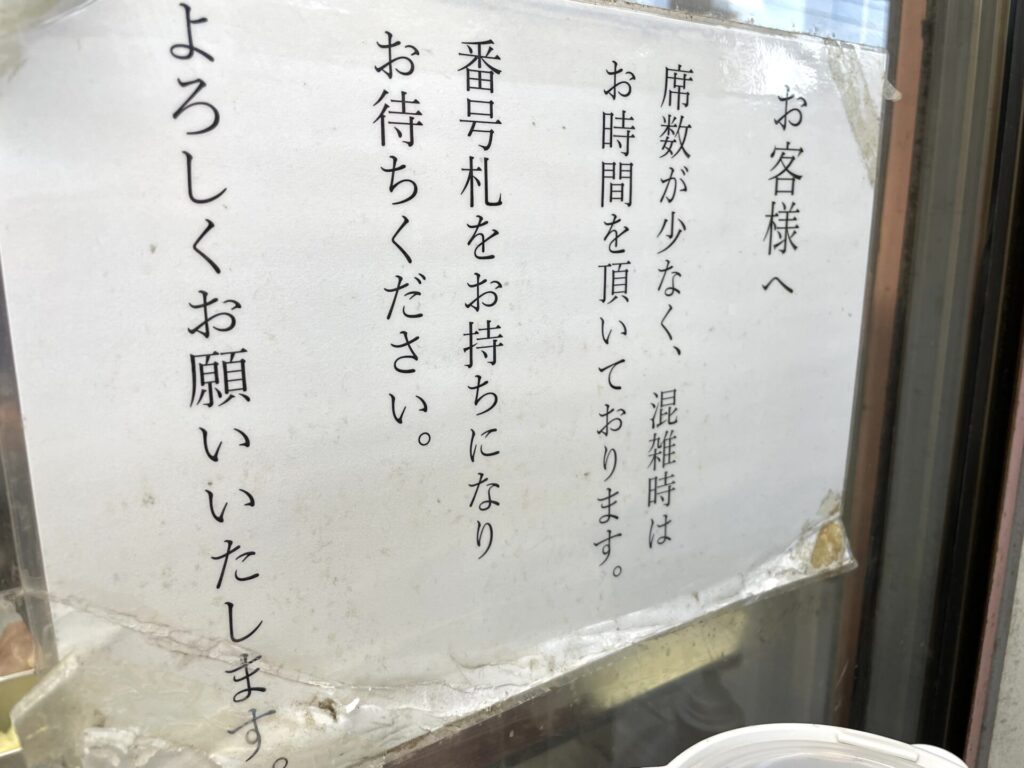 お客様へ
席数が少なく、混雑時は
お時間を頂いております。
番号札をお持ちになり
お待ちください。
よろしくお願いいたします。